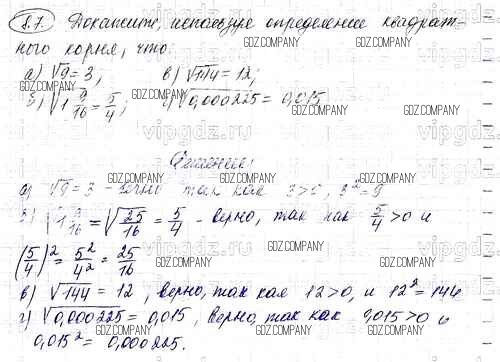 8.7 Докажите, используя определение квадрат-
ного корня, что:
а) √9 = 3, в) √144 = 12;
б) √1 9/16 = 5/4; г) √0,000225 = 0,015
Решение:
а) √9 = 3 - верно так как 3>0, 3² = 9
б) √1 9/16 = √25/16 = 5/4 - верно, так как 5/4 >0 и
(5/4)² = 5²/4² = 25/16
в) √144 = 12, верно, так как 12>0, и 12² = 144
г) √0,000225 = 0,015, верно, так как 0,015 >0 и
0,015² = 0,000225.
GDZ.COMPANY
vipgdz.ru